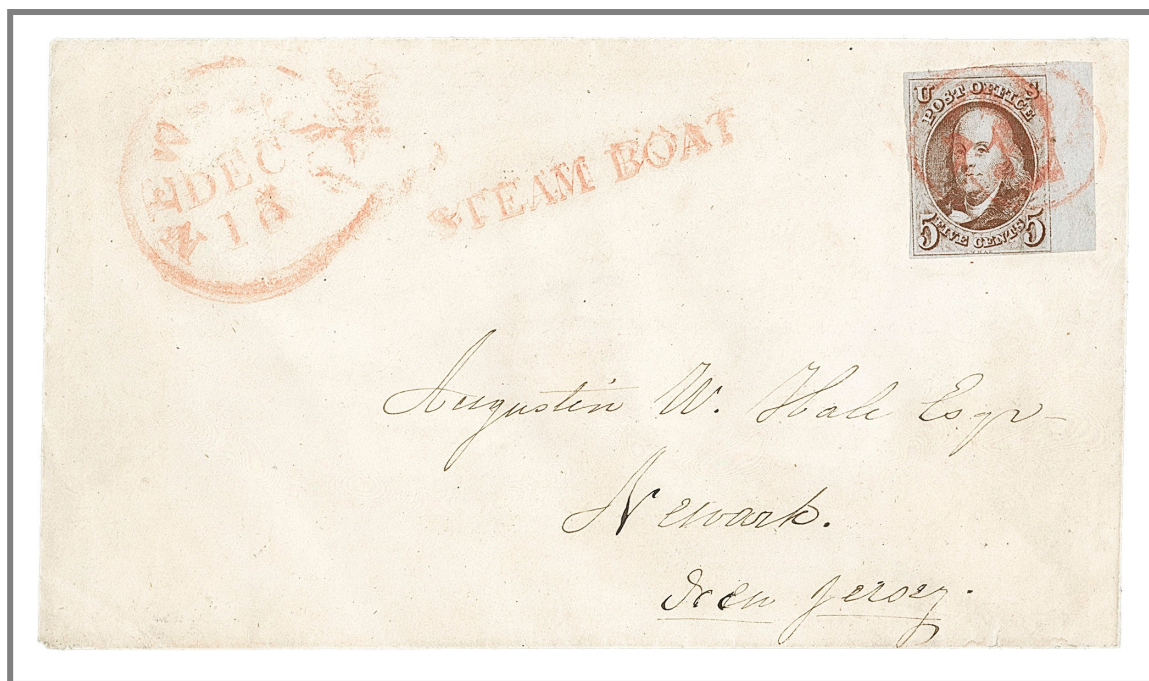 NEW
DEC
STEAM BOAT
U S
POST OFFICE
5 FIVE CENTS 5
Augustin W. Hale Esqr
Newark.
New Jersey.